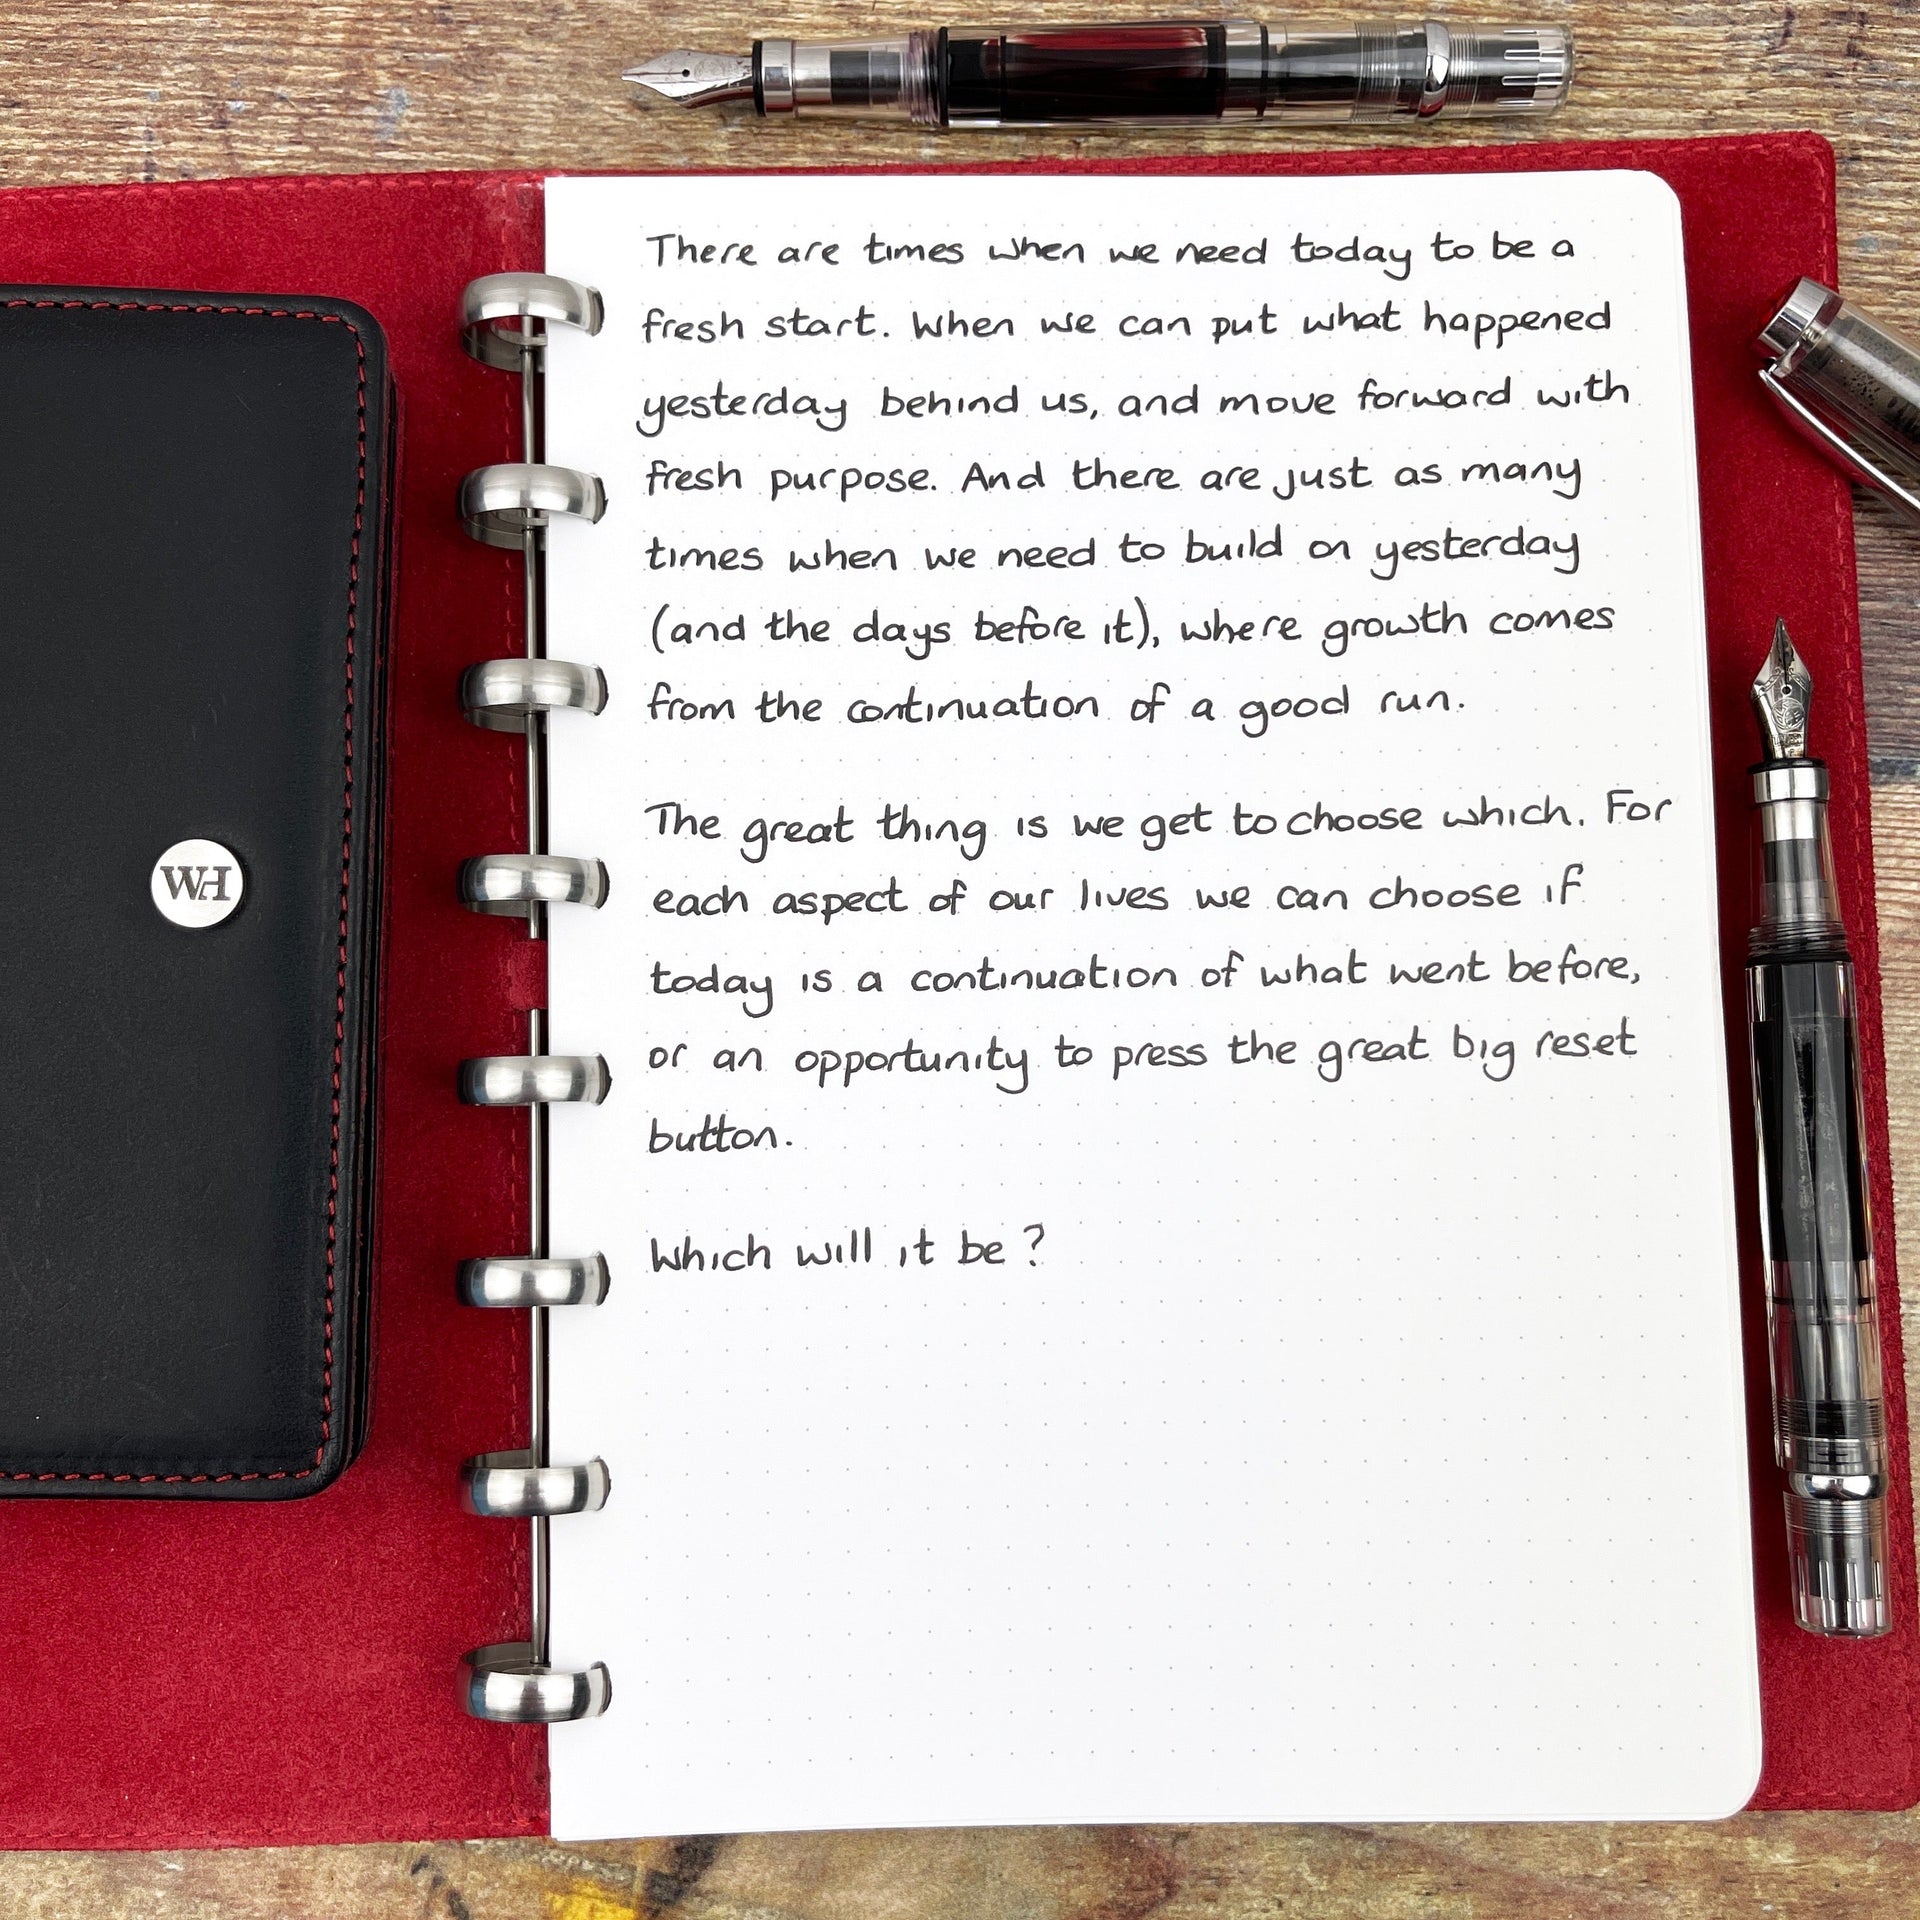 There are times when we need today to be a
fresh start. When we can put what happened
yesterday behind us, and move forward with
fresh purpose. And there are just as many
times when we need to build on yesterday
(and the days before it), where growth comes
from the continuation of a good run.
The great thing is we get to choose which. For
each aspect of our lives we can choose if
today is a continuation of what went before,
or an opportunity to press the great big reset
button.
Which will it be?
WH